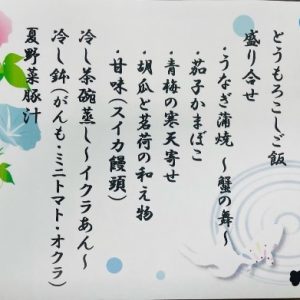 とうもろこしご飯
盛り合せ
・うなぎ蒲焼 ～蟹の舞～
・茄子かまぼこ
・青梅の寒天寄せ
・胡瓜と茗荷の和え物
・甘味(スイカ饅頭)
冷し茶碗蒸し～イクラあん～
冷し鉢(がんも・ミニトマト・オクラ)
夏野菜豚汁